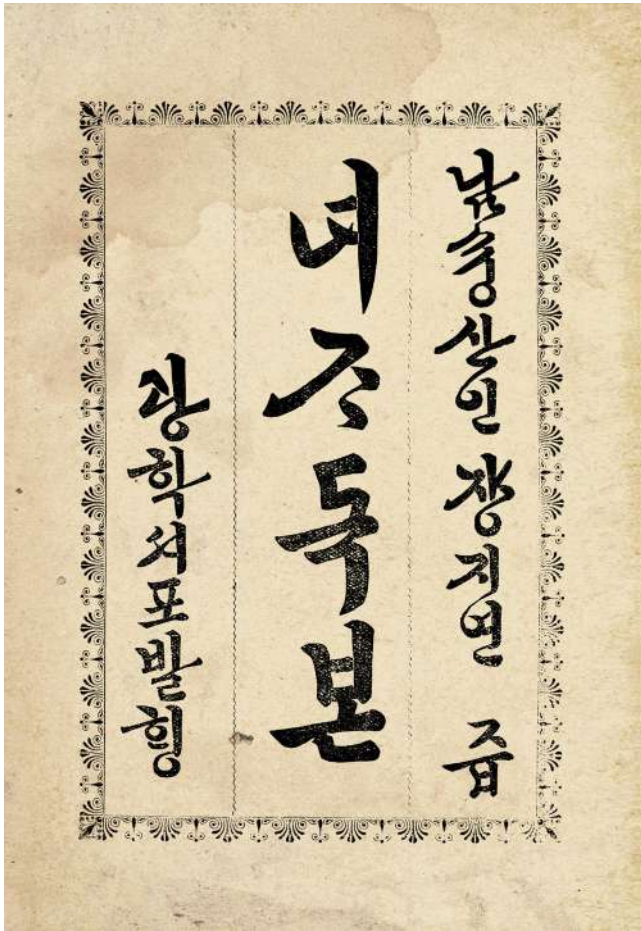 남슝산인 쟝지연 즙
녀ᄌᆞ독본
광학셔포발ᄒᆡᆼ